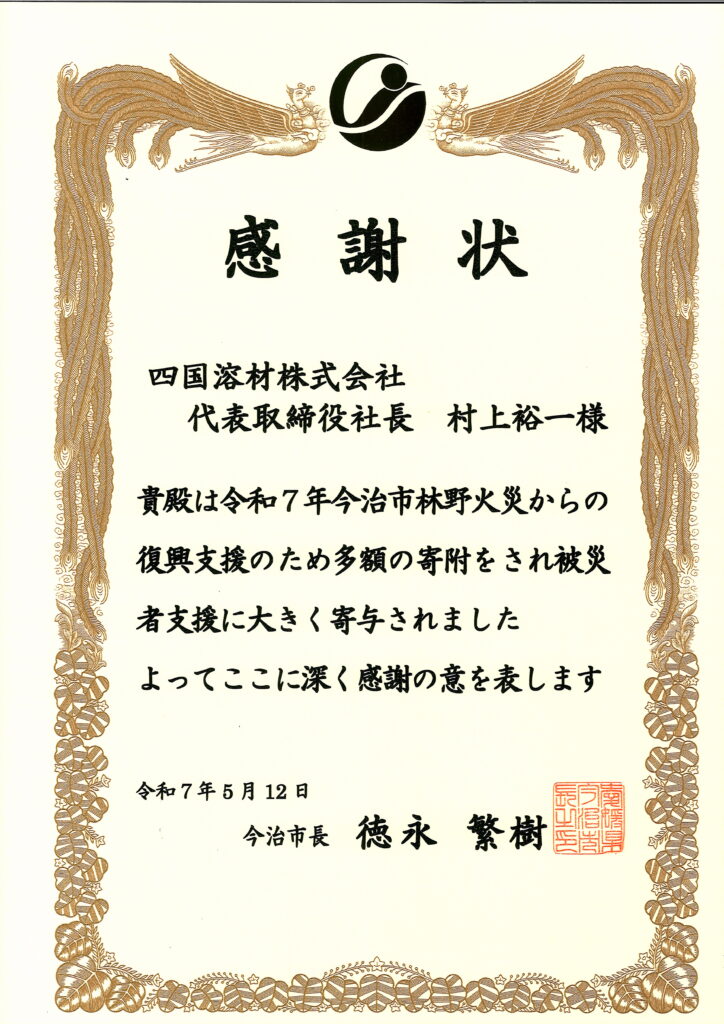 感謝状
四国溶材株式会社
代表取締役社長　村上裕一様
貴殿は令和７年今治市林野火災からの
復興支援のため多額の寄附をされ被災
者支援に大きく寄与されました
よってここに深く感謝の意を表します
令和７年５月12日
今治市長　徳永　繁樹
愛媛県
今治市
長之印